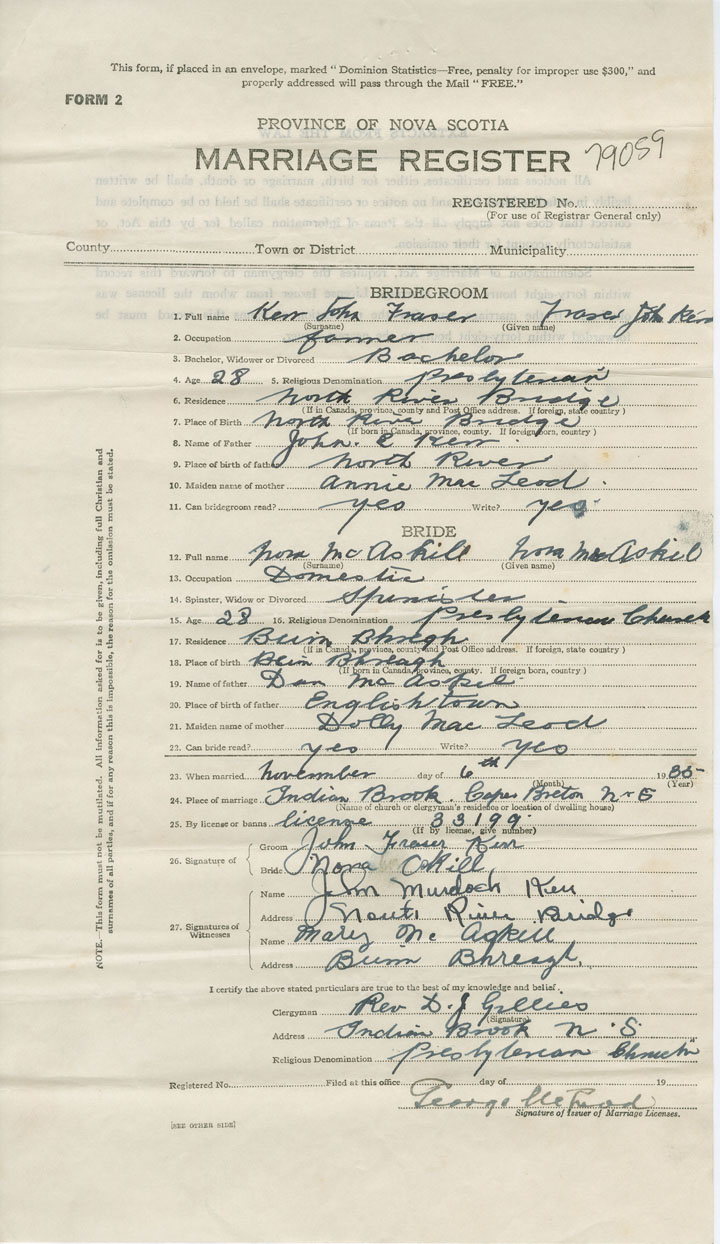 This form, if placed in an envelope, marked “ Dominion Statistics—Free, penalty for improper use $300,” and
properly addressed will pass through the Mail “ FREE.”
FORM 2
PROVINCE OF NOVA SCOTIA
MARRIAGE REGISTER 79059
REGISTERED No.
(For use of Registrar General only)
County Town or District Municipality
BRIDEGROOM
1. Full name Kerr John Fraser Fraser John Kerr
(Surname) (Given name)
2. Occupation farmer
3. Bachelor, Widower or Divorced Bachelor
4. Age 28 5. Religious Denomination Presbyterian
6. Residence North River Bridge
(If in Canada, province, county and Post Office address. If foreign, state country )
7. Place of Birth North River Bridge
(If born in Canada, province, county. If foreign born, country )
8. Name of Father John. E Kerr
9. Place of birth of father North River
10. Maiden name of mother Annie Mac Leod .
11. Can bridegroom read? yes Write? yes
BRIDE
12. Full name Nora McAskill Nora McAskil
(Surname) (Given name)
13. Occupation Domestic
14. Spinster, Widow or Divorced Spinister
15. Age 28 16. Religious Denomination Presbyterian Church
17. Residence Bhreagh
(If in Canada, province, county and Post Office address. If foreign, state country )
18. Place of birth Bein Bhreagh
(If born in Canada, province, county. If foreign born, country )
19. Name of father Dan McAskil
20. Place of birth of father Englishtown
21. Maiden name of mother Dolly Mac Leod
22. Can bride read? yes Write? yes
23. When married November day of 6th 1935
(Month) (Year)
24. Place of marriage Indian Brook. Cape Breton N.S
(Name of church or clergyman's residence or location of dwelling house)
25. By license or banns license 33199
(If by license, give number)
26. Signature of Groom John Fraser Kerr
Bride Nora
27. Signatures of Witnesses
Name Jim Murdock Kerr
Address North River Bridge
Name Mary Mc Askill
Address Bhreagh,
I certify the above stated particulars are true to the best of my knowledge and belief.
Clergyman Rev D. J Gillies
(Signature)
Address Indian Brook N. S
Religious Denomination Presbyterian Church
Registered No. Filed at this office day of 19
George McLeod
Signature of Issuer of Marriage Licenses.
[SEE OTHER SIDE]
NOTE.—This form must not be mutilated. All information asked for is to be given, including full Christian and
surnames of all parties, and if for any reason this is impossible, the reason for the omission must be stated.